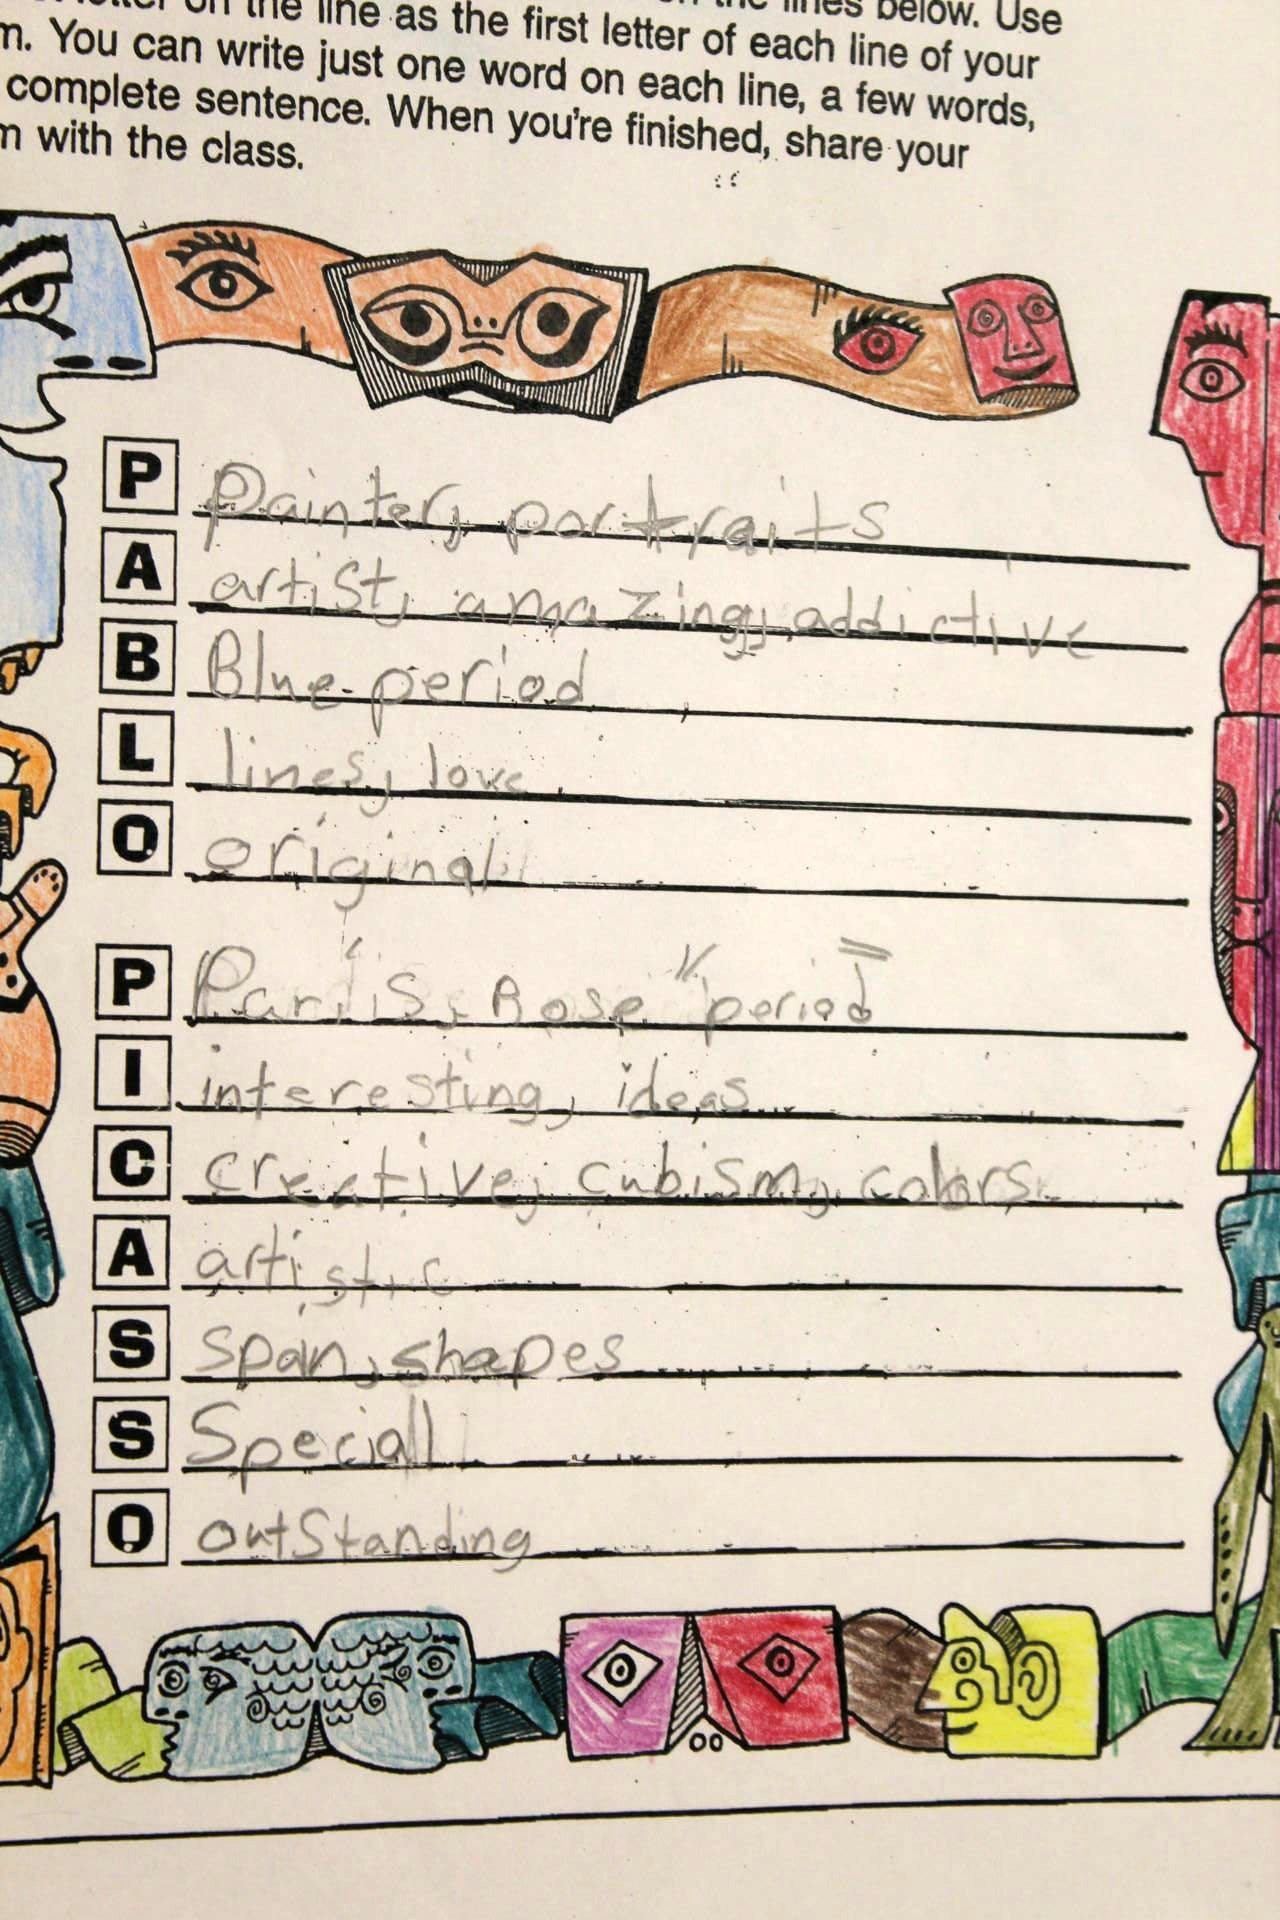 letter on the line as the first letter of each line of your
the lines below. Use
m. You can write just one word on each line, a few words,
complete sentence. When you're finished, share your
m with the class.
P Painter, portraits
A artist, amazing, addictive
B Blue period
L lines, love
O original
P Paris, Rose period
I interesting, ideas
C creative, cubism, colors
A artistic
S span, shapes
S Speciall
O outStanding